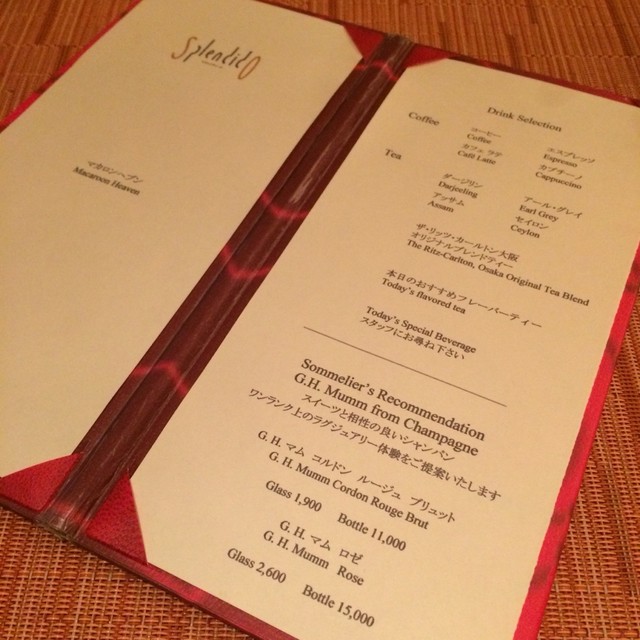 Splendido
マカロンヘブン
Macaroon Heaven
Drink Selection
Coffee
コーヒー
Coffee
エスプレッソ
Espresso
カフェ ラテ
Café Latte
カプチーノ
Cappuccino
Tea
ダージリン
Darjeeling
アール・グレイ
Earl Grey
アッサム
Assam
セイロン
Ceylon
ザ・リッツ・カールトン大阪
オリジナルブレンドティー
The Ritz-Carlton, Osaka Original Tea Blend
本日のおすすめフレーバーティー
Today's flavored tea
Today's Special Beverage
スタッフにお尋ね下さい
Sommelier's Recommendation
G.H. Mumm from Champagne
スイーツと相性の良いシャンパン
ワンランク上のラグジュアリー体験をご提案いたします
G. H. マム コルドン ルージュ ブリュット
G. H. Mumm Cordon Rouge Brut
Glass 1,900 Bottle 11,000
G. H. マム ロゼ
G. H. Mumm Rose
Glass 2,600 Bottle 15,000